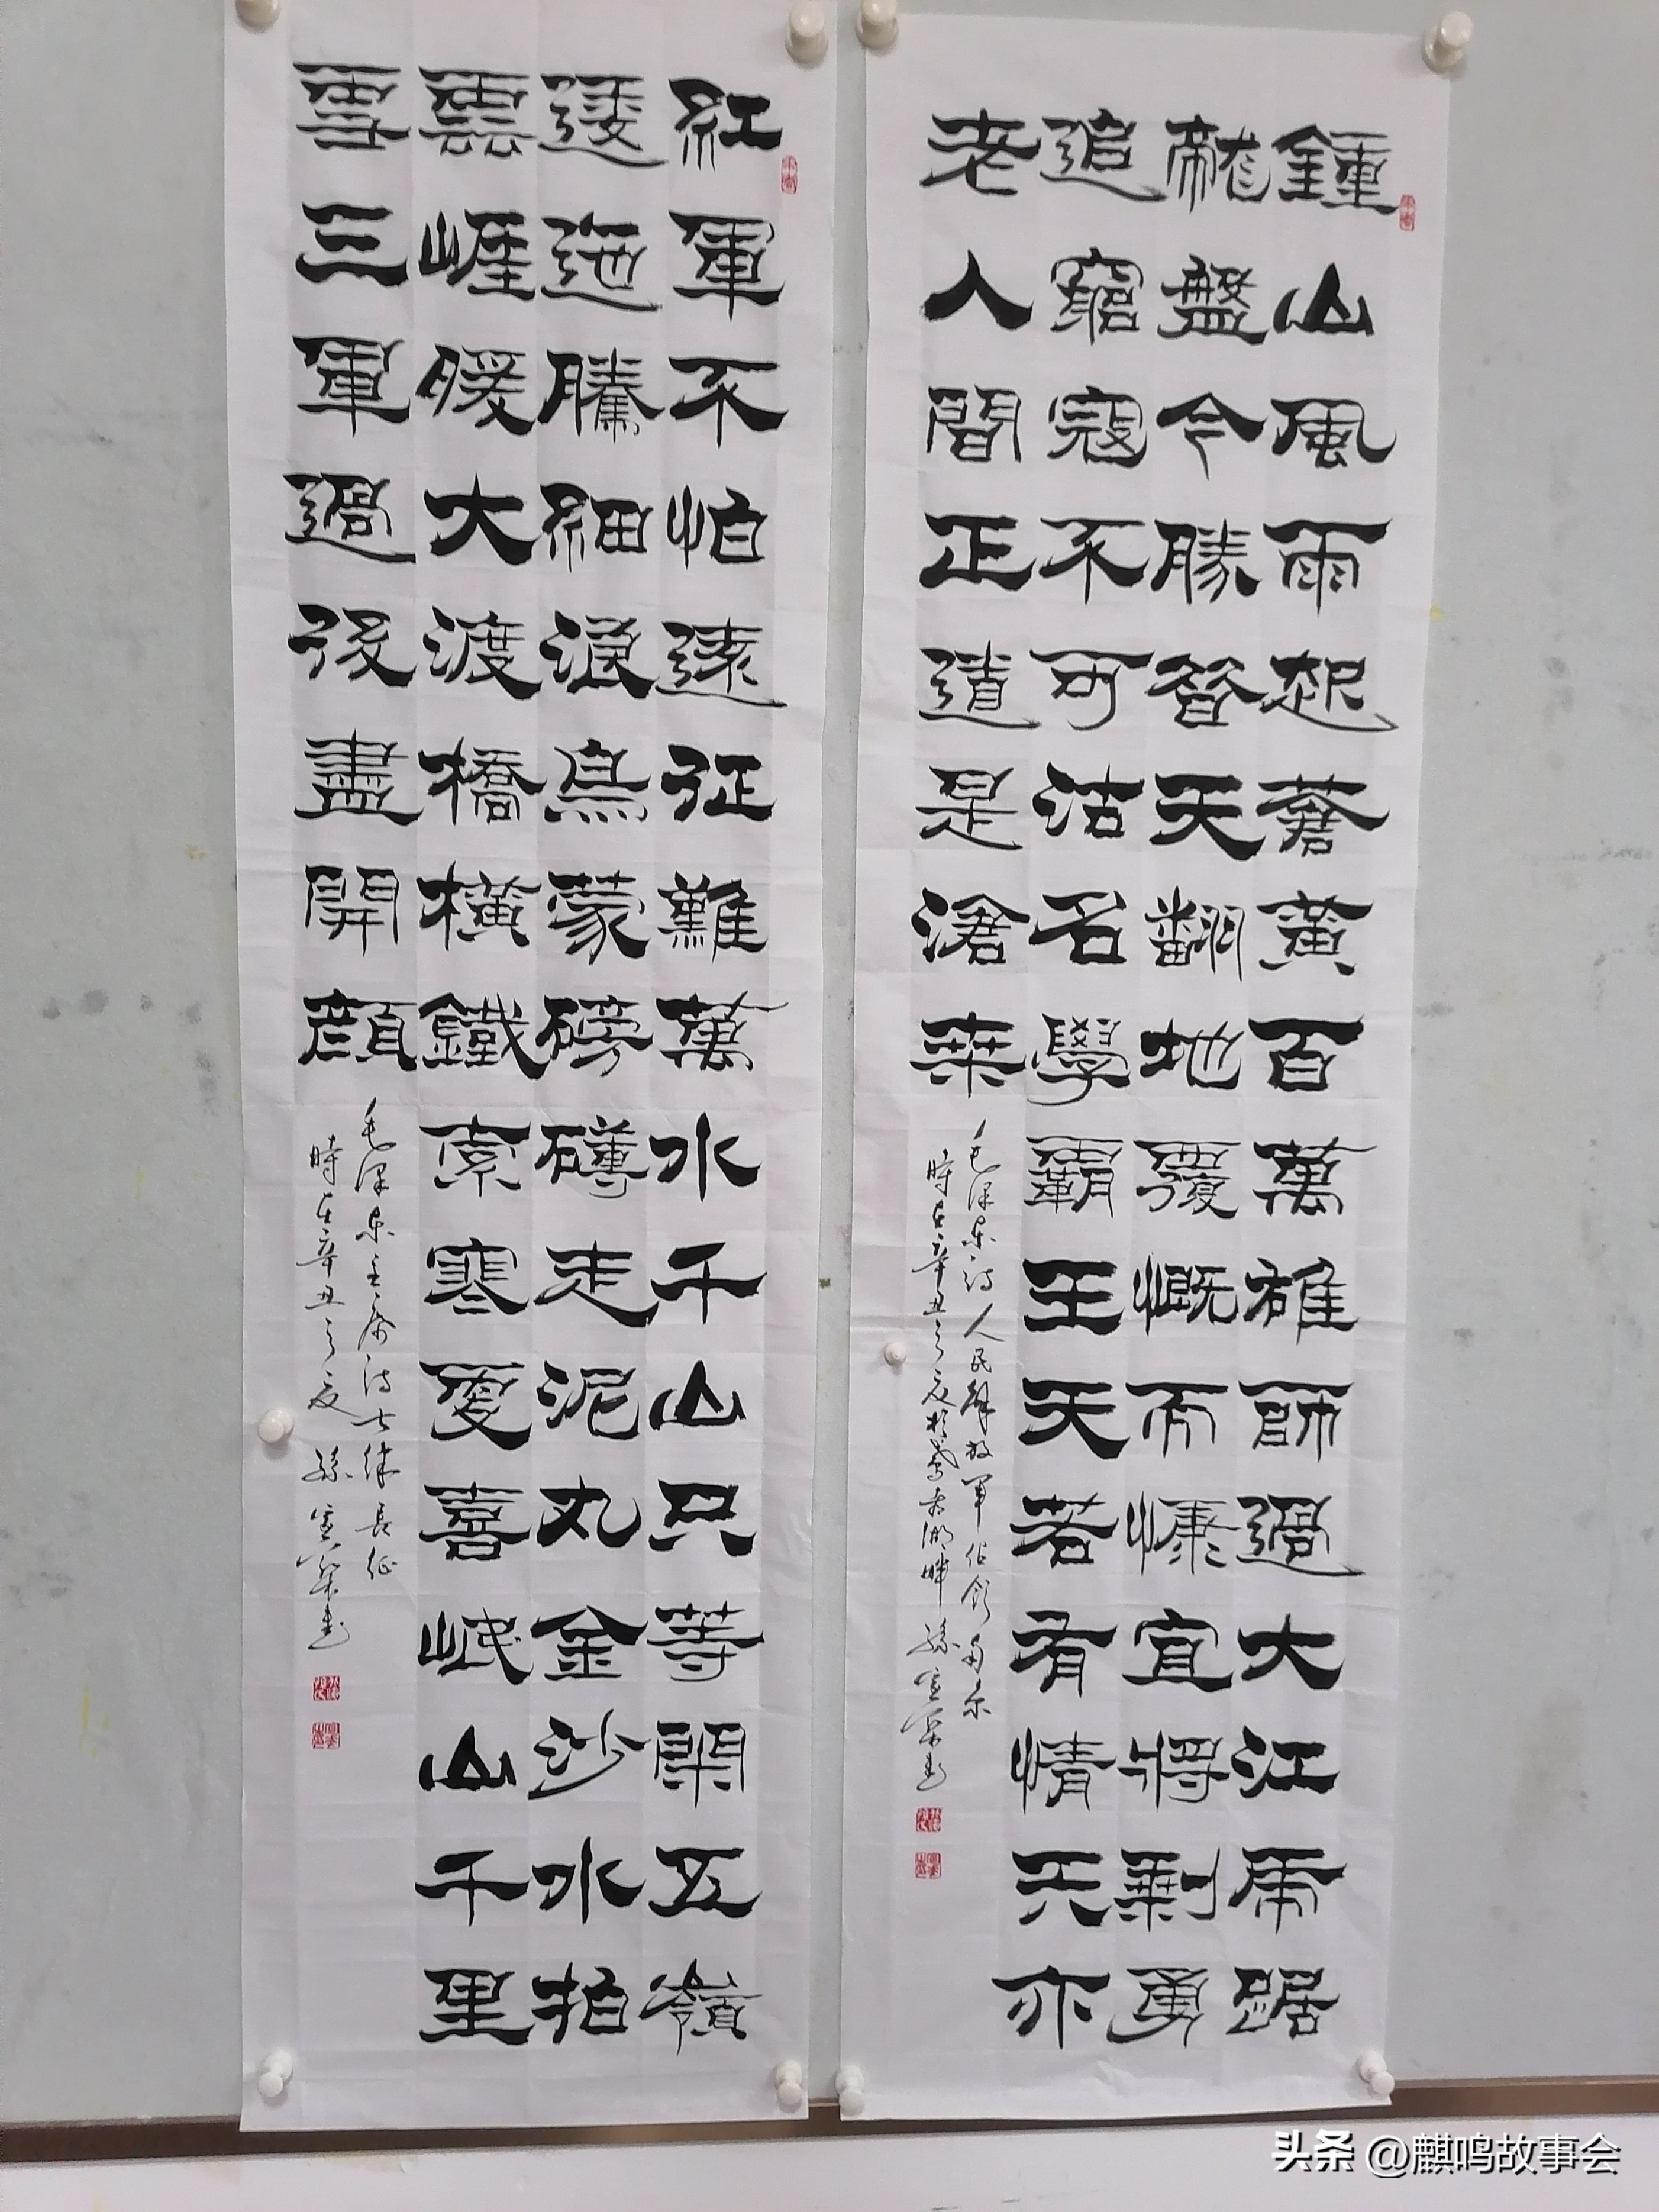 鍾山風雨起蒼黃百萬雄師過大江虎踞
龍盤今勝昔天翻地覆慨而慷宜將剩勇
追窮寇不可沽名學霸王天若有情天亦
老人間正道是滄桑
毛澤東詩人民解放軍佔領南京
時在辛丑之夏於湖畔孫書
紅軍不怕遠征難萬水千山只等閑五嶺
逶迤騰細浪烏蒙磅礴走泥丸金沙水拍
雲崖暖大渡橋橫鐵索寒更喜岷山千里
雪三軍過後盡開顏
毛澤東主席詩七律長征
時在辛丑之夏孫書
头条 @麒鸣故事会